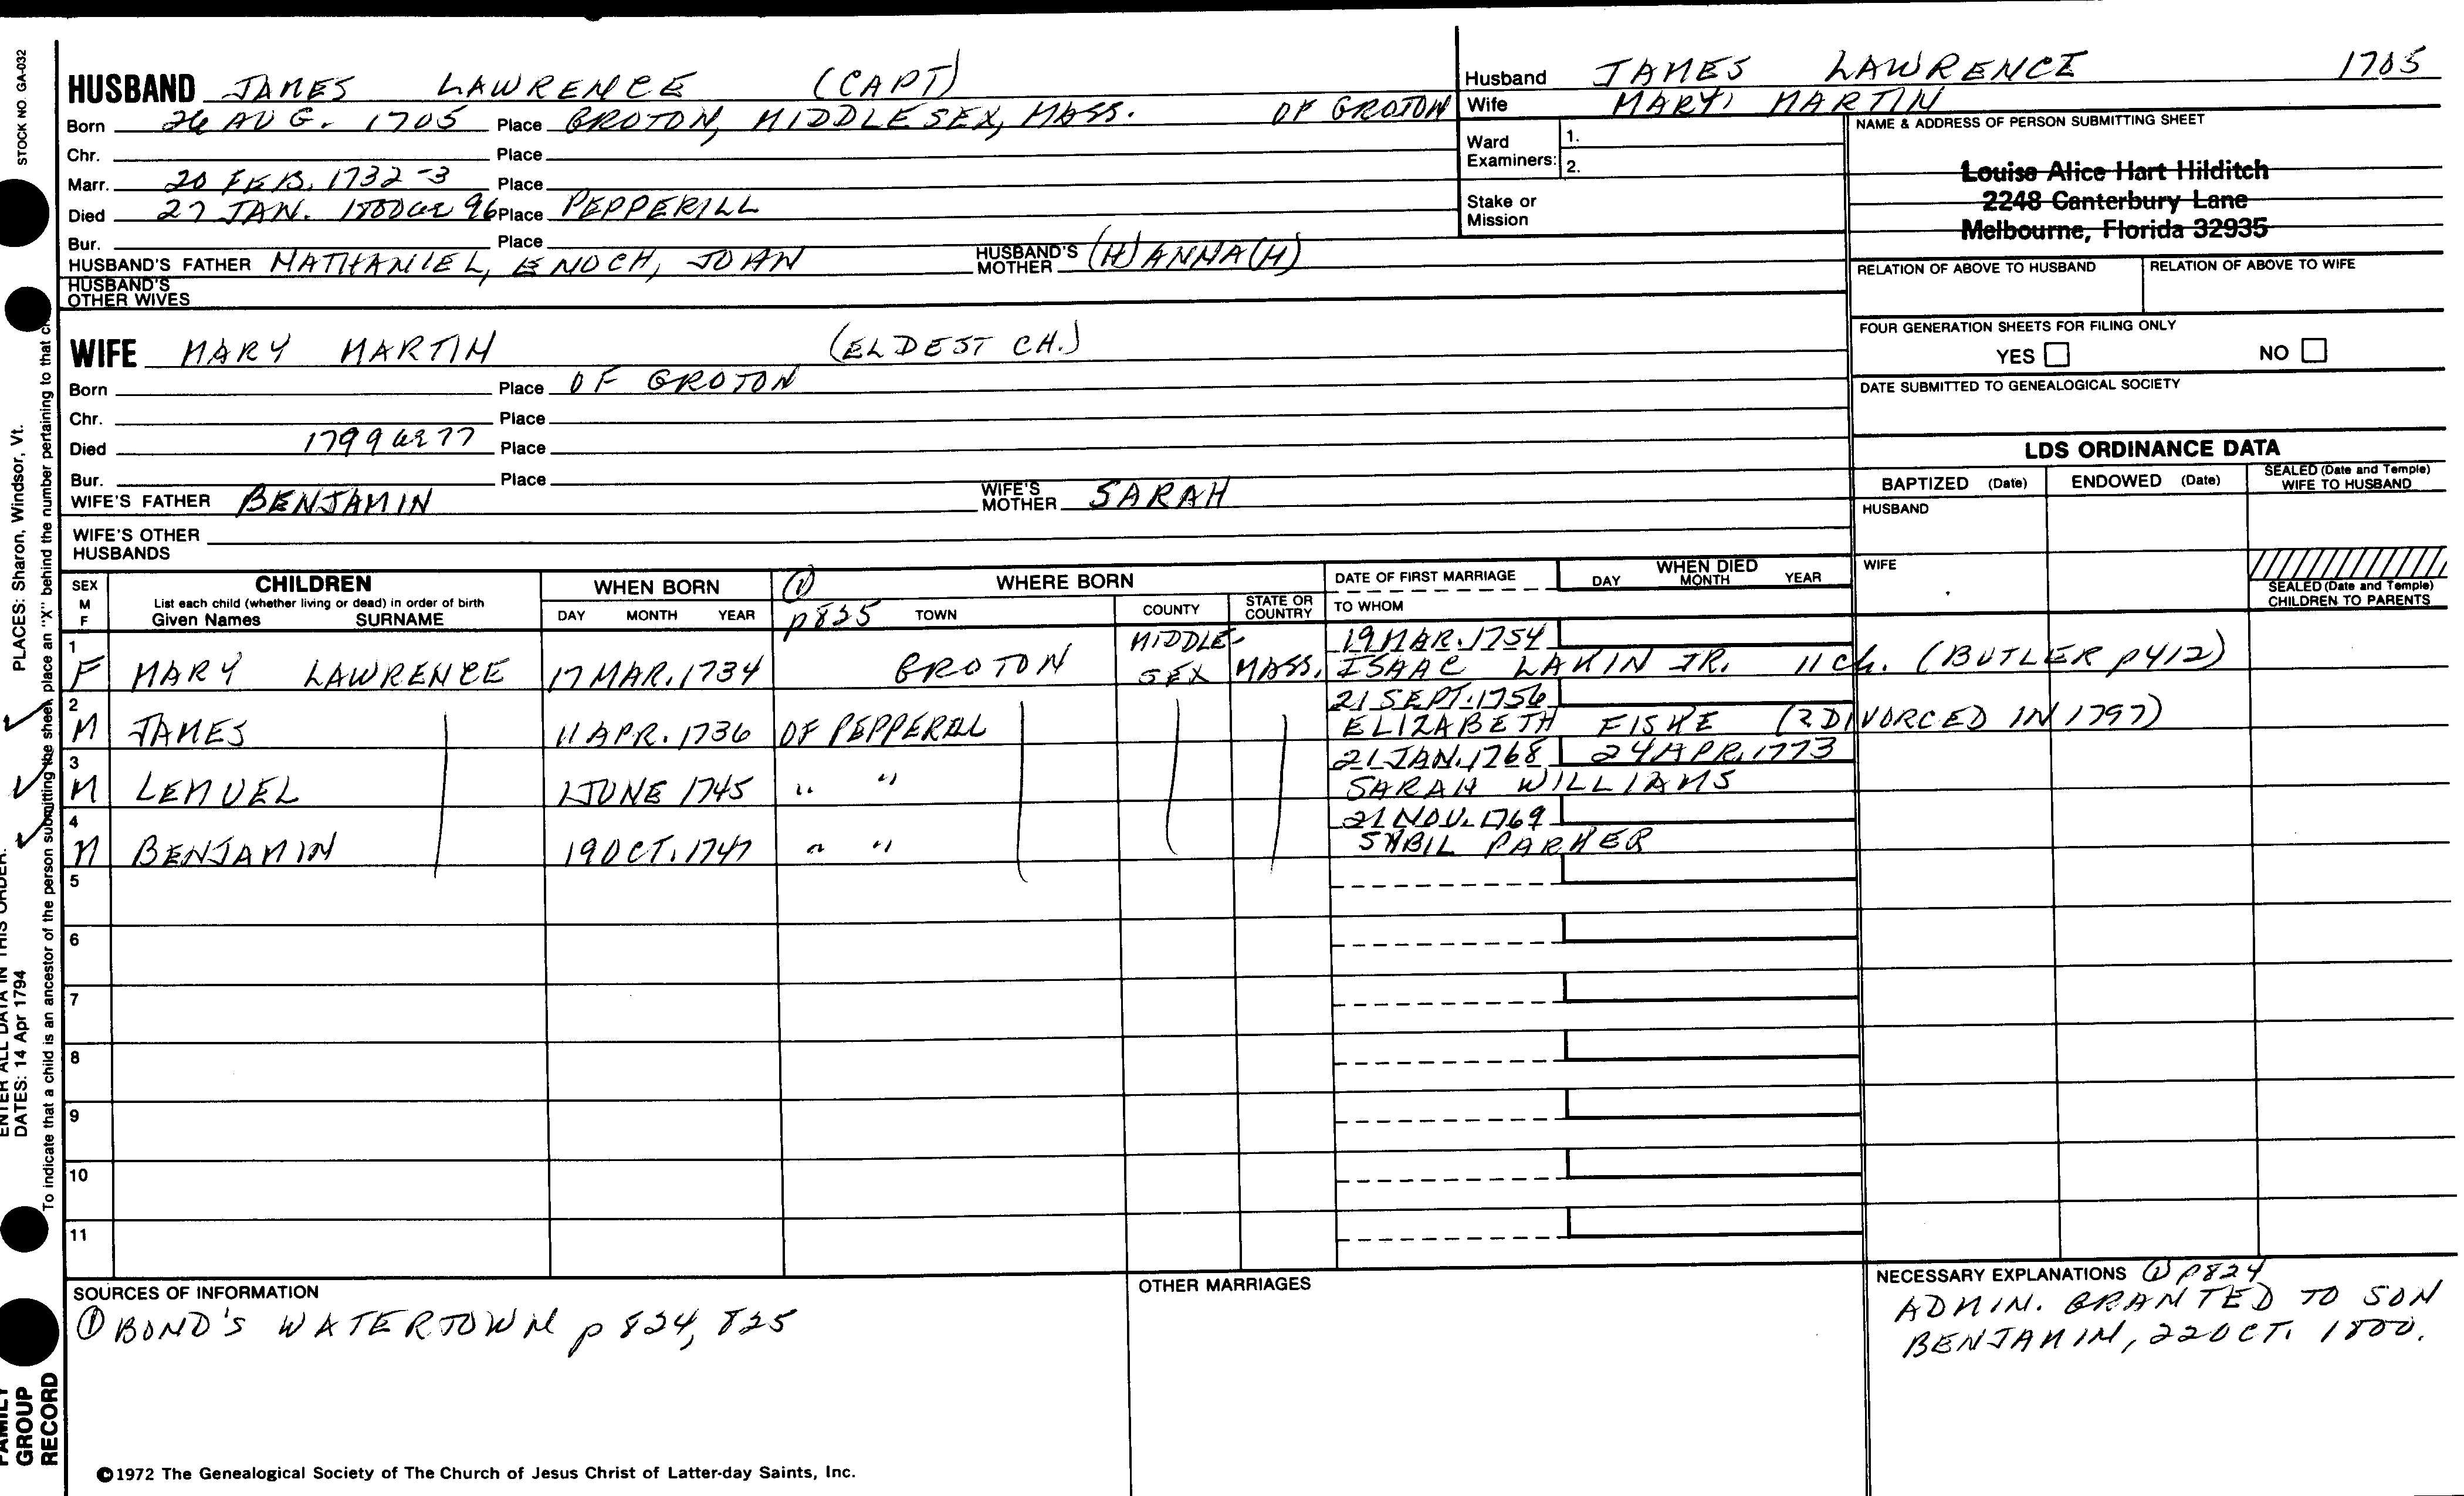 STOCK NO. GA-032
HUSBAND JAMES LAWRENCE (CAPT)
Born 26 AUG. 1705 Place GROTON, MIDDLESEX, MASS. OF GROTON
Chr. Place
Marr. 20 FEB. 1732-3 Place
Died 27 JAN. 1800 ae 96 Place PEPPERILL
Bur. Place
HUSBAND'S FATHER NATHANIEL, ENOCH, JOHN HUSBAND'S MOTHER (H)ANNA(H)
HUSBAND'S OTHER WIVES
Husband JAMES LAWRENCE 1705
Wife MARY MARTIN
Ward Examiners: 1.
2.
Stake or Mission
NAME & ADDRESS OF PERSON SUBMITTING SHEET
Louise Alice Hart Hilditch
2248 Canterbury Lane
Melbourne, Florida 32935
RELATION OF ABOVE TO HUSBAND RELATION OF ABOVE TO WIFE
FOUR GENERATION SHEETS FOR FILING ONLY
YES NO
DATE SUBMITTED TO GENEALOGICAL SOCIETY
WIFE MARY MARTIN (ELDEST CH.)
Born Place OF GROTON
Chr. Place
Died 1799 ae 77 Place
Bur. Place
WIFE'S FATHER BENJAMIN WIFE'S MOTHER SARAH
WIFE'S OTHER HUSBANDS
LDS ORDINANCE DATA
BAPTIZED (Date) ENDOWED (Date) SEALED (Date and Temple) WIFE TO HUSBAND
HUSBAND
WIFE
SEALED (Date and Temple) CHILDREN TO PARENTS
SEX M F CHILDREN WHEN BORN ① WHERE BORN DATE OF FIRST MARRIAGE WHEN DIED
List each child (whether living or dead) in order of birth
Given Names SURNAME DAY MONTH YEAR p825 TOWN COUNTY STATE OR COUNTRY TO WHOM DAY MONTH YEAR
1 19 MAR. 1754
F MARY LAWRENCE 17 MAR. 1734 GROTON MIDDLE-SEX MASS. ISAAC LAKIN JR. 11 ch. (BUTLER p412)
2 21 SEPT. 1756
M JAMES 11 APR. 1736 OF PEPPERELL ELIZABETH FISKE (? DIVORCED IN 1797)
3 21 JAN. 1768 24 APR. 1773
M LEMUEL 1 JUNE 1745 " " SARAH WILLIAMS
4 21 NOV. 1769
M BENJAMIN 19 OCT. 1747 " " SYBIL PARKER
5
6
7
8
9
10
11
SOURCES OF INFORMATION
① BOND'S WATERTOWN p 824, 825
OTHER MARRIAGES
NECESSARY EXPLANATIONS ① p824
ADMIN. GRANTED TO SON
BENJAMIN, 22 OCT. 1800.
©1972 The Genealogical Society of The Church of Jesus Christ of Latter-day Saints, Inc.
PLACES: Sharon, Windsor, Vt.
ENTER ALL DATA IN THIS ORDER:
DATES: 14 Apr 1794
To indicate that a child is an ancestor of the person submitting the sheet, place an "X" behind the number pertaining to that
FAMILY
GROUP
RECORD